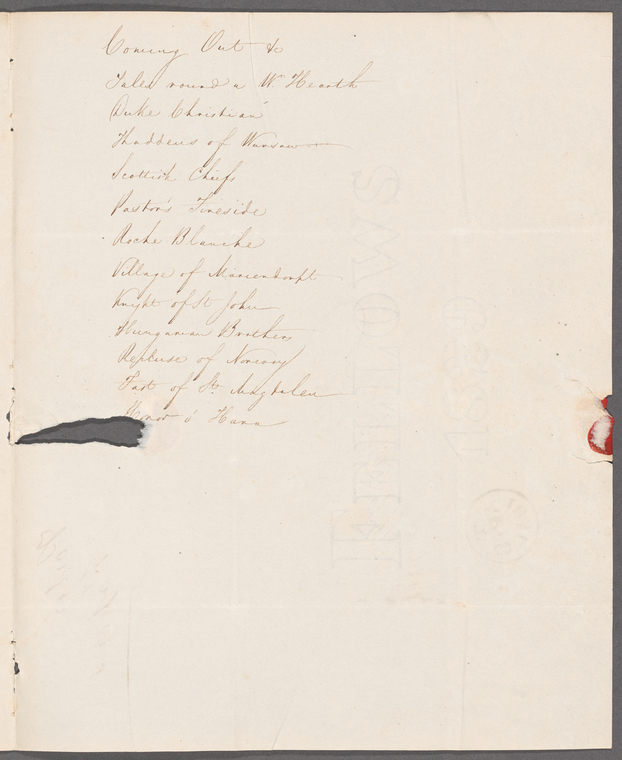 Coming Out &c
Tales round a Wr. Hearth
Duke Christian
Thaddeus of Warsaw
Scottish Chiefs
Pastor's Fireside
Roche Blanche
Village of Mariendorpt
Knight of St John
Hungarian Brothers
Recluse of Norway
Fast of St. Magdalen
Honor o' Hara
FELLOWS
1830